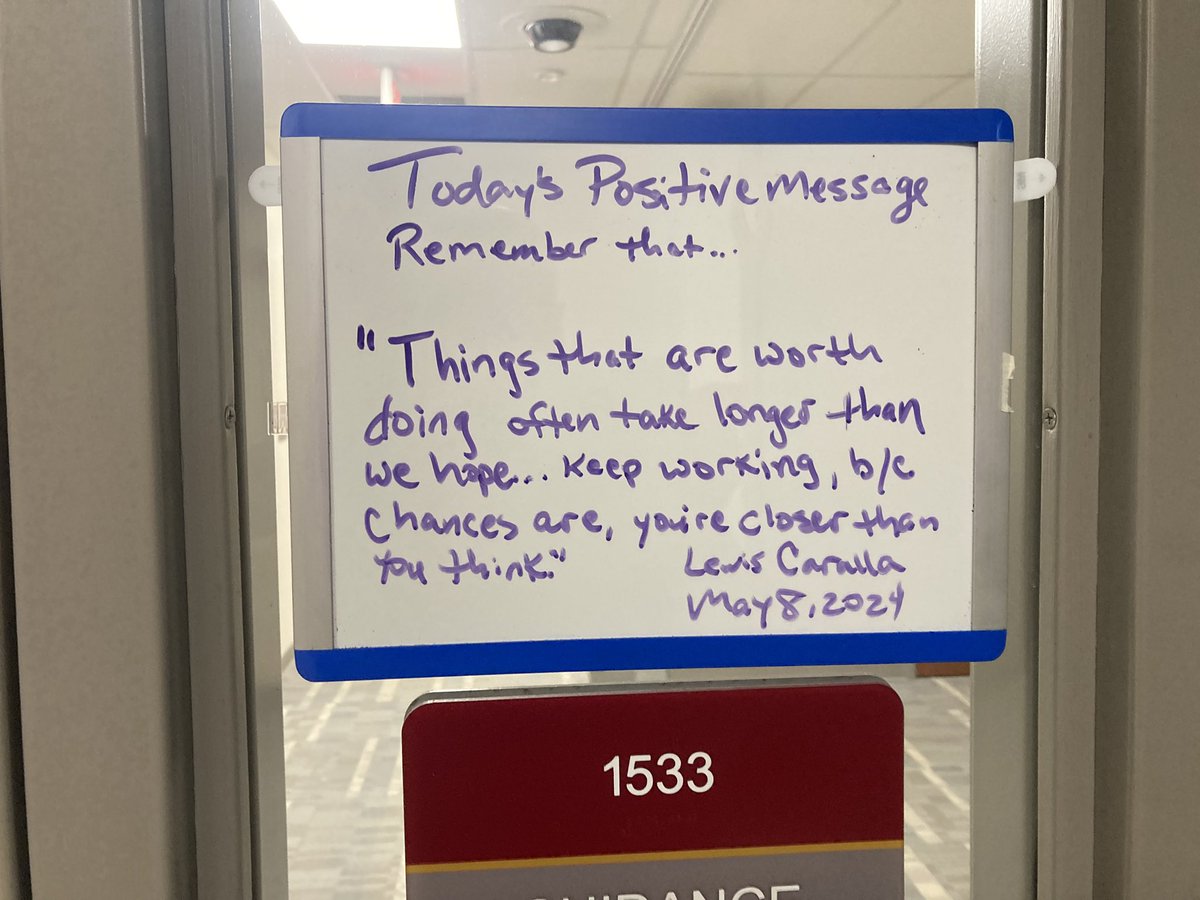 Today's Positive Message
Remember that...
"Things that are worth
doing often take longer than
we hope... Keep working, b/c
chances are, you're closer than
you think."
Lewis Caralla
May 8, 2024
1533
GUIDANCE